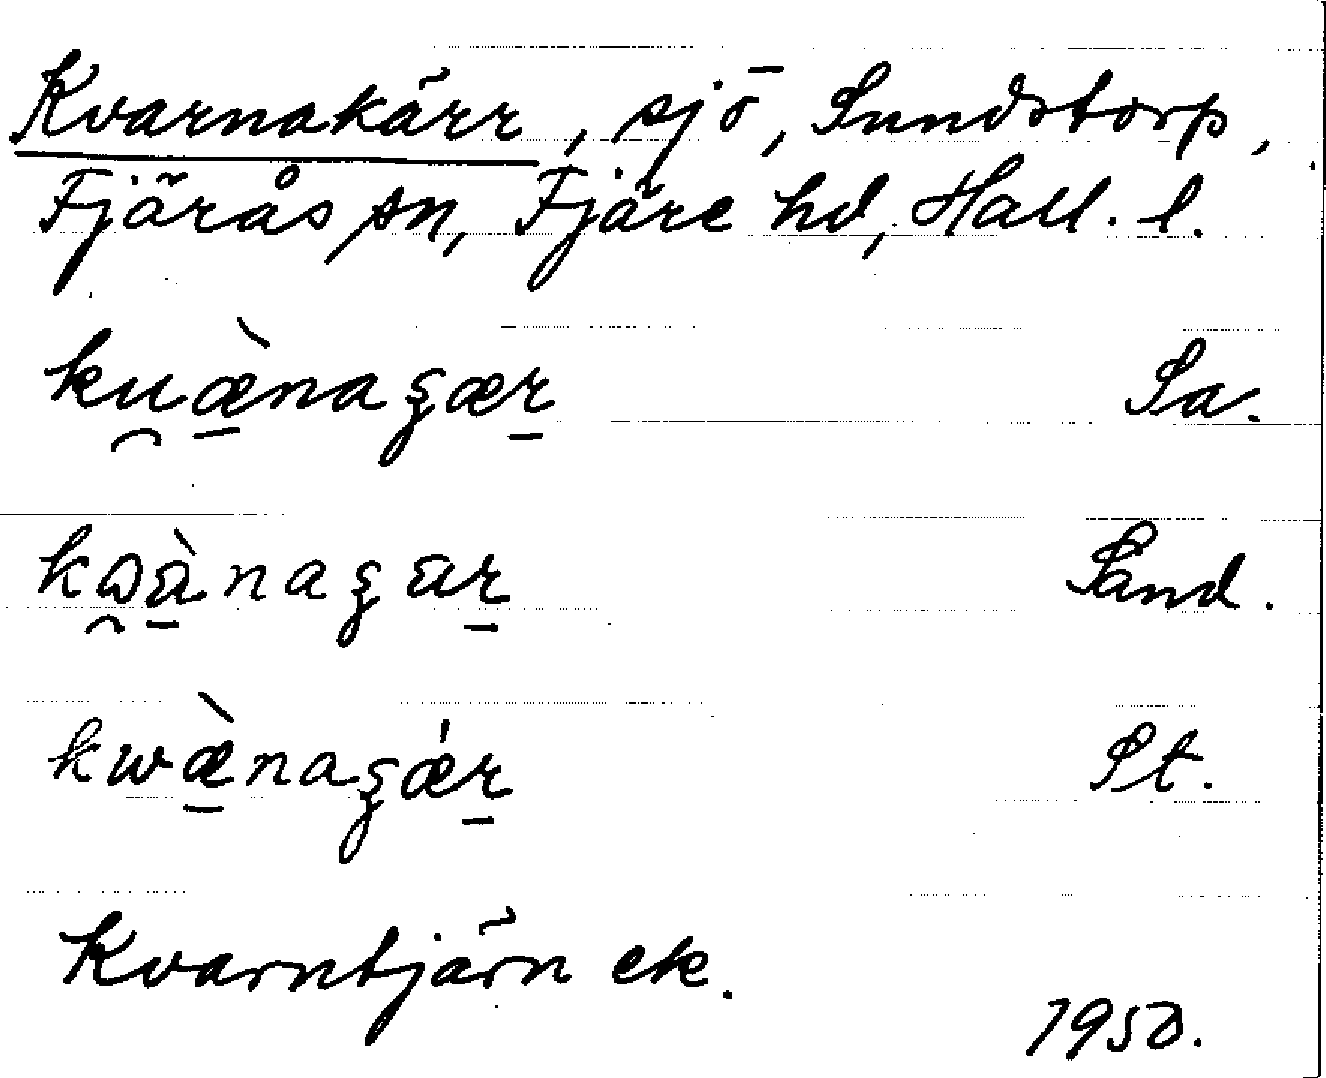 Kvarnakärr, sjö, Sundstorp,
Fjärås sn, Fjäre hd, Hall. l.
ku̯æ̠̀nagær̠ Sa.
Sand.
kwæ̠̀nagǽr̠ St.
Kvarntjärn ek.
1950.